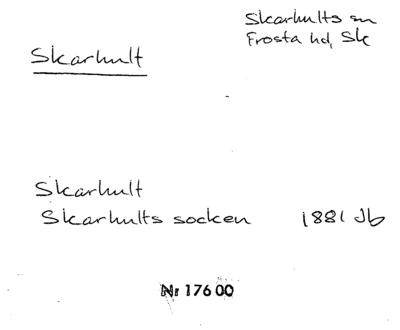 Skarhults sn
Frosta hd, Sk
Skarhult
Skarhult
Skarhults socken 1881 Jb
Nr 17600